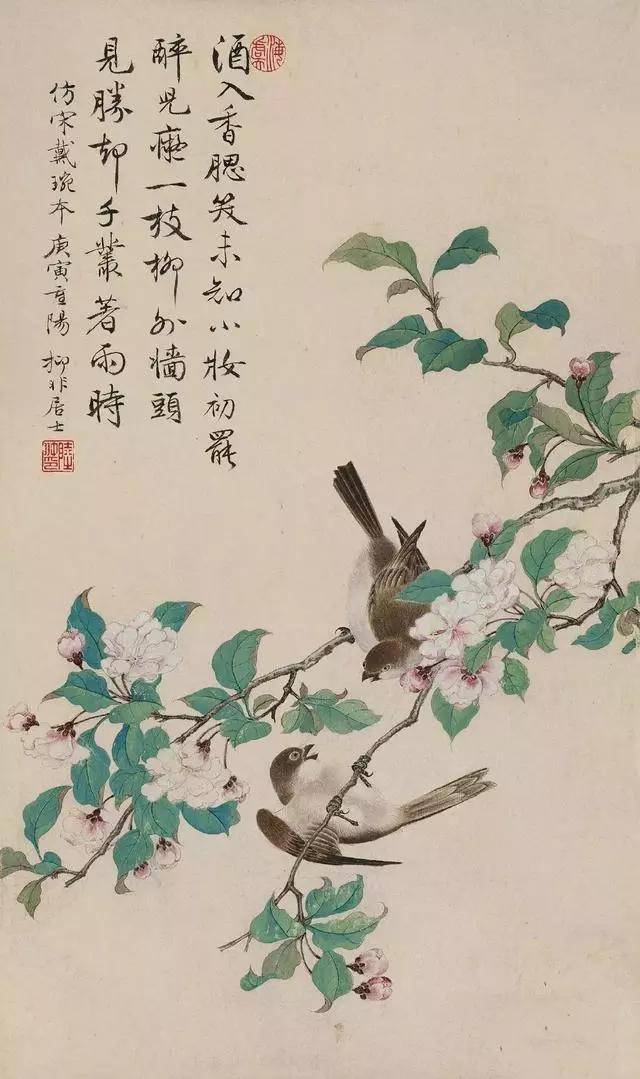 酒入香腮笑未知小妝初罷
醉兒癡一枝柳外墻頭
見勝却千叢著雨時
仿宋戴琬本 庚寅重陽 抑非居士
海虞